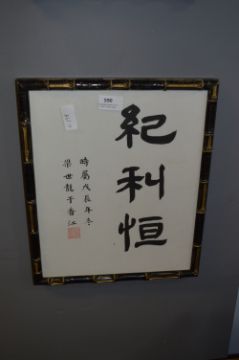 紀利恒
時屬戊辰年冬
梁世龍于香江
590